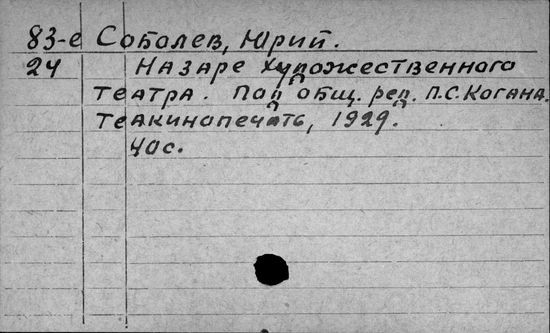 83-е Соболев, Юрий.
24 На заре Художественного
театра. Под общ. ред. П.С.Когана.
Теакинопечать, 1929.
40с.